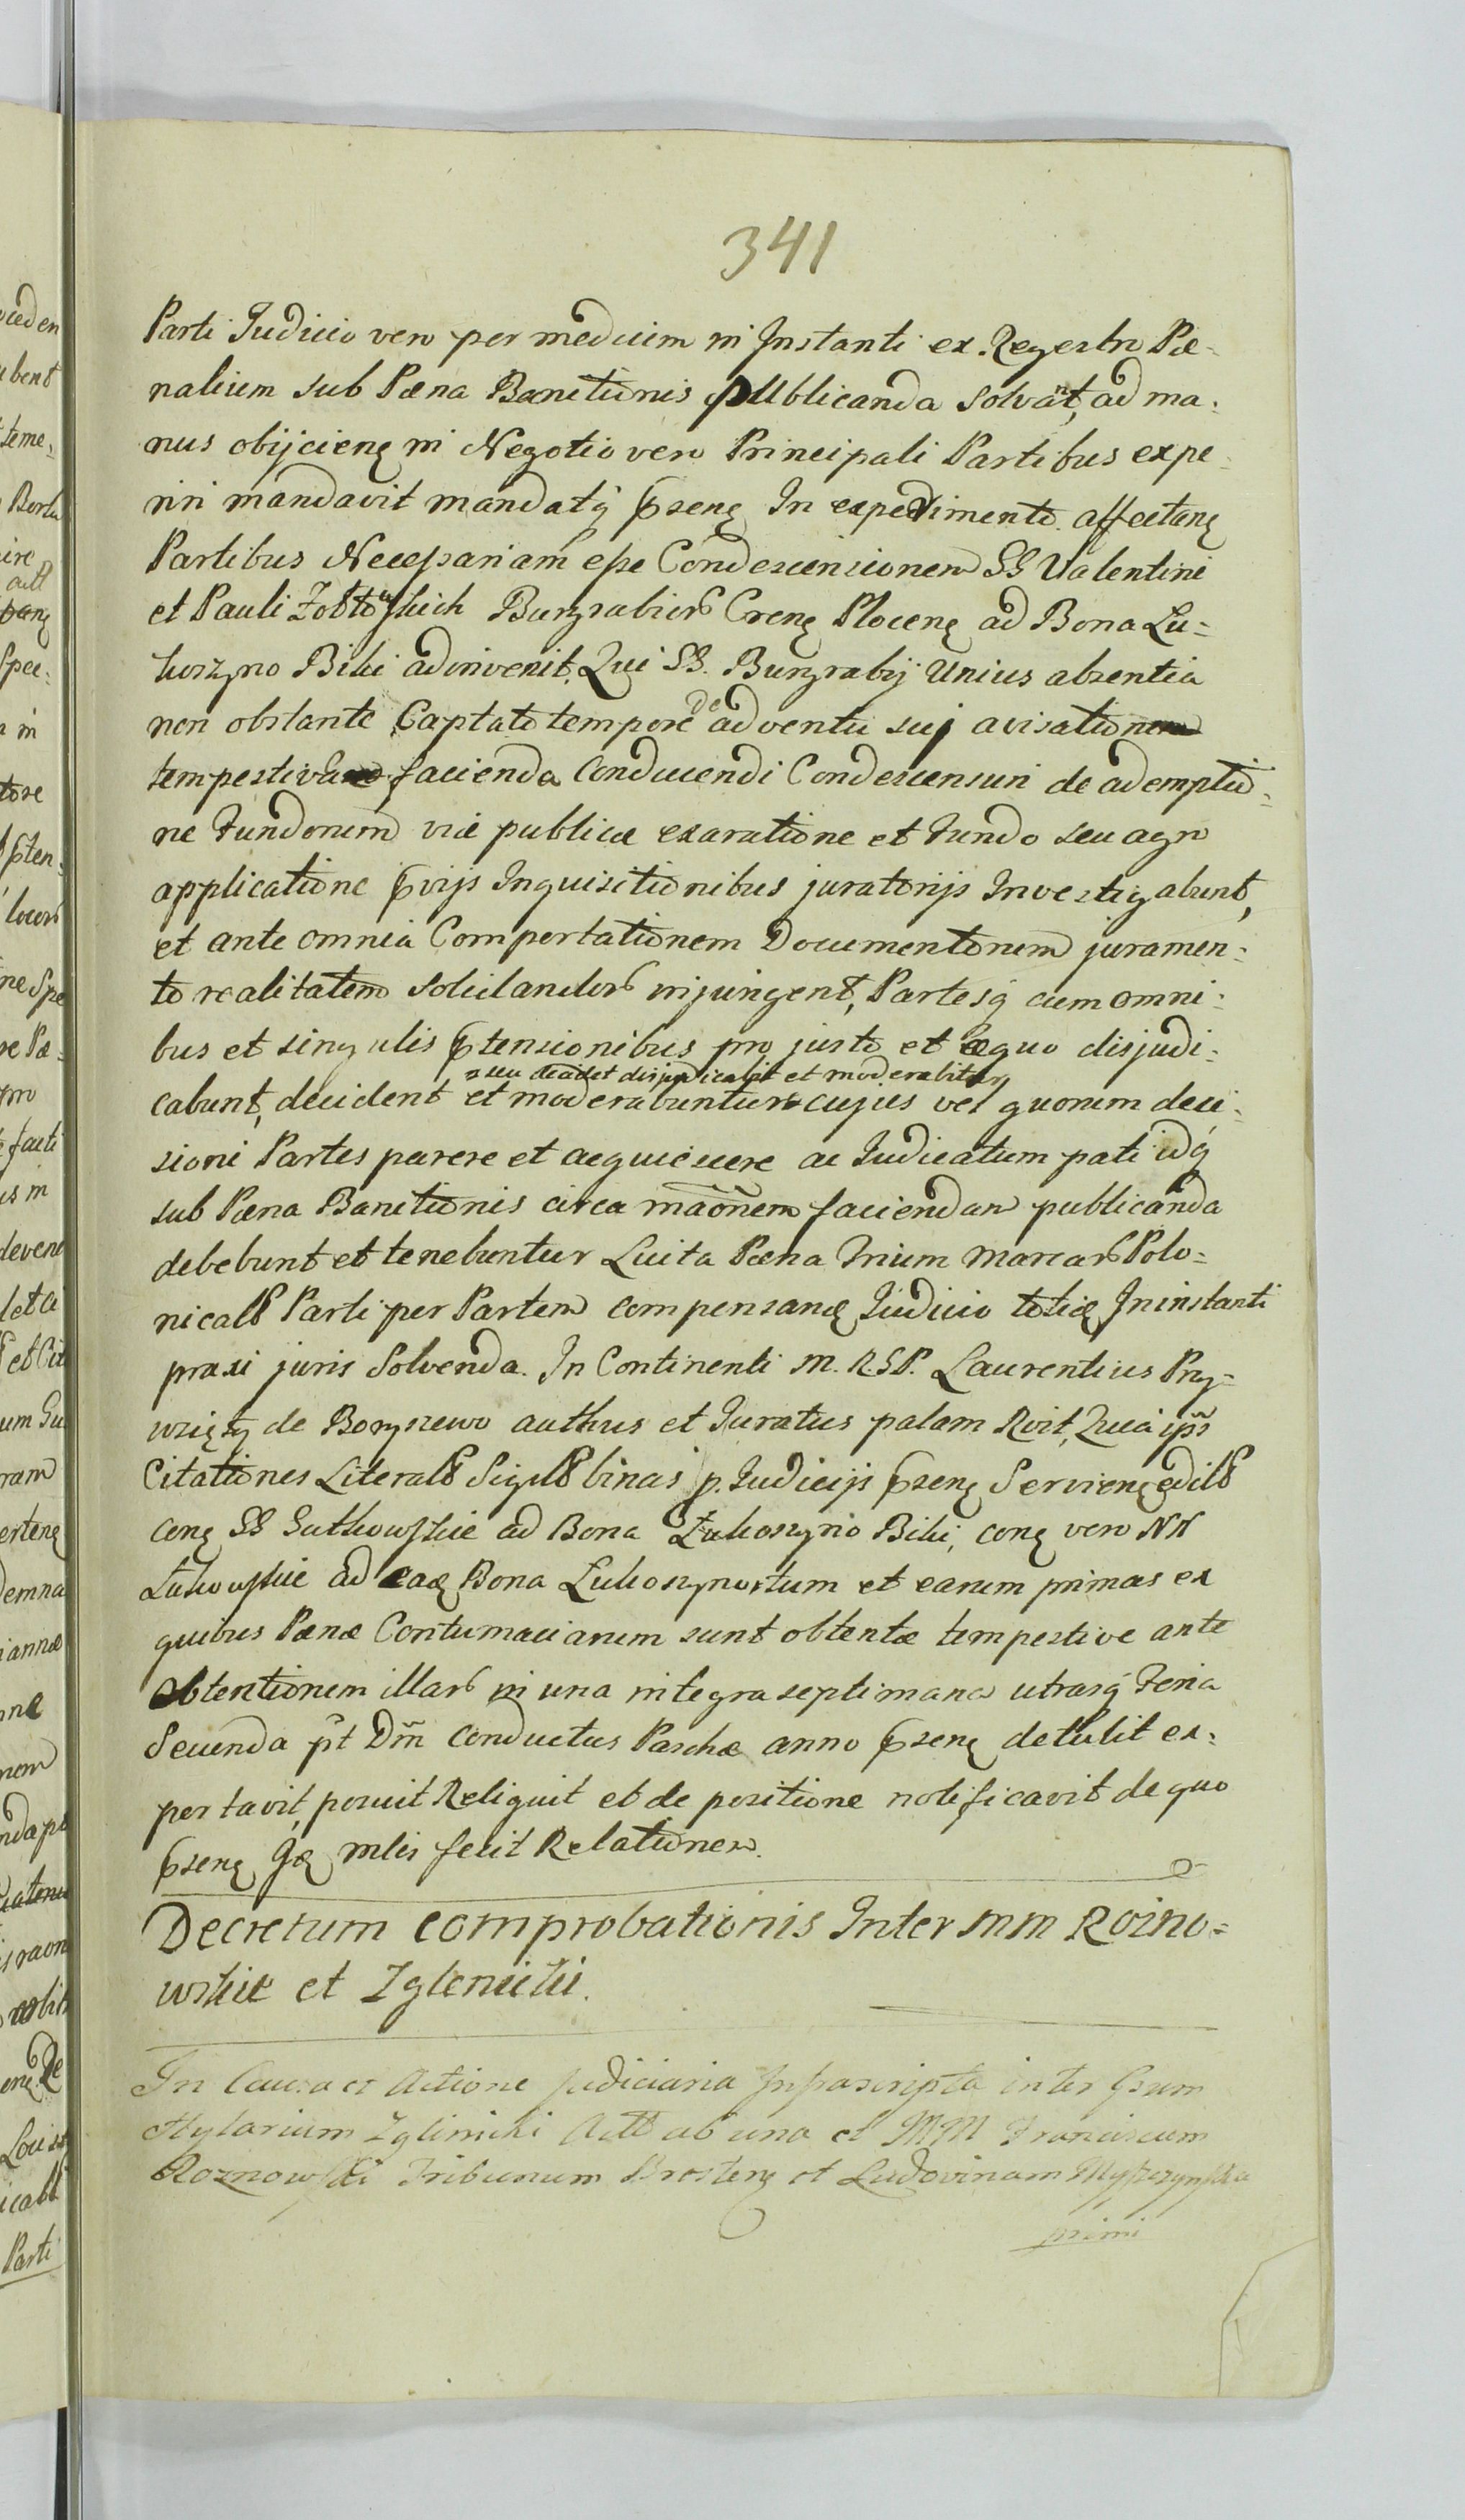 341
Parti Judicio vero per medium in Instanti ex Regestro Pæ-
nalium sub Pæna Banitionis publicanda solvant, ad ma-
nus obijcienę in Negotio vero Principali Partibus expe-
riri mandavit mandatq́ pꝛzenę In expedimento affectanę
Partibus Necessariam esse Condescensionem SS Valentini
et Pauli Żółtowskich Burgrabior Crenę Plocenę ad Bona Lu-
koszyno Biki adinvenit, Qui SS. Burgrabij Unius absentia
non obstante Captato tempore de adventu suj avisatione
tempestiva facienda Conducendi Condescensuri de ademptio-
ne Fundorum viæ publicæ exaratione et Fundo seu agro
applicatione pvijs Inquisitionibus juratorijs Investigabunt,
et ante omnia Comportationem Documentorum juramen-
to realitatem solidandor injungent, Partesq́ cum omni-
bus et singulis ptensionibus pro justo et æquo disjudi-
seu decidet disjudicabit et moderabitur
cabunt, decident et moderabuntur cujus vel quorum deci-
sioni Partes parere et acquiescere ac Judicatum pati idq́
sub Pæna Banitionis circa mãonem faciendam publicanda
debebunt et tenebuntur Luita Pæna Trium marcar Polo-
nicall Parti per Partem compensanę Judicio totię In instanti
praxi juris Solvenda. In Continenti M. R. S.P. Laurentius Pry-
wzięty de Boryszewo authus et Juratus palam Rvit, Quia ips̃
Citationes Literall Sigill binas p. Judicijs pzenę Servienę edill
conę SS Gutkowskie ad Bona Łukoszyno Biki, conę vero NN
Łukowskie ad eaę Bona Lukoszynortum et earum primas ex
quibus Pænæ Contumaciarum sunt obtentæ tempestive ante
obtentionem illar in una integra septimana utrasq́ Feria
Secunda pt Dm̃ Conductus Paschæ anno pzenę detulit ex-
portavit, posuit Reliquit et de positione notificavit de quo
pzenę Ję mlis fecit Relationem.
Decretum comprobationis Inter MM Rozno-
wskie et Zglenicki.
In Causa et Actione judiciaria Infrascripta inter Gsum
Hylarium Zglinicki Actt ab una et MM Franciscum
Roznowski Tribunum Brestenę et Ludovinam Myszczynska
primi